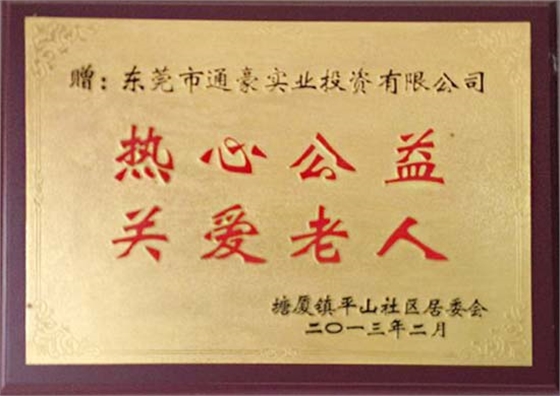 赠：东莞市通豪实业投资有限公司
热心公益
关爱老人
塘厦镇平山社区居委会
二〇一三年二月